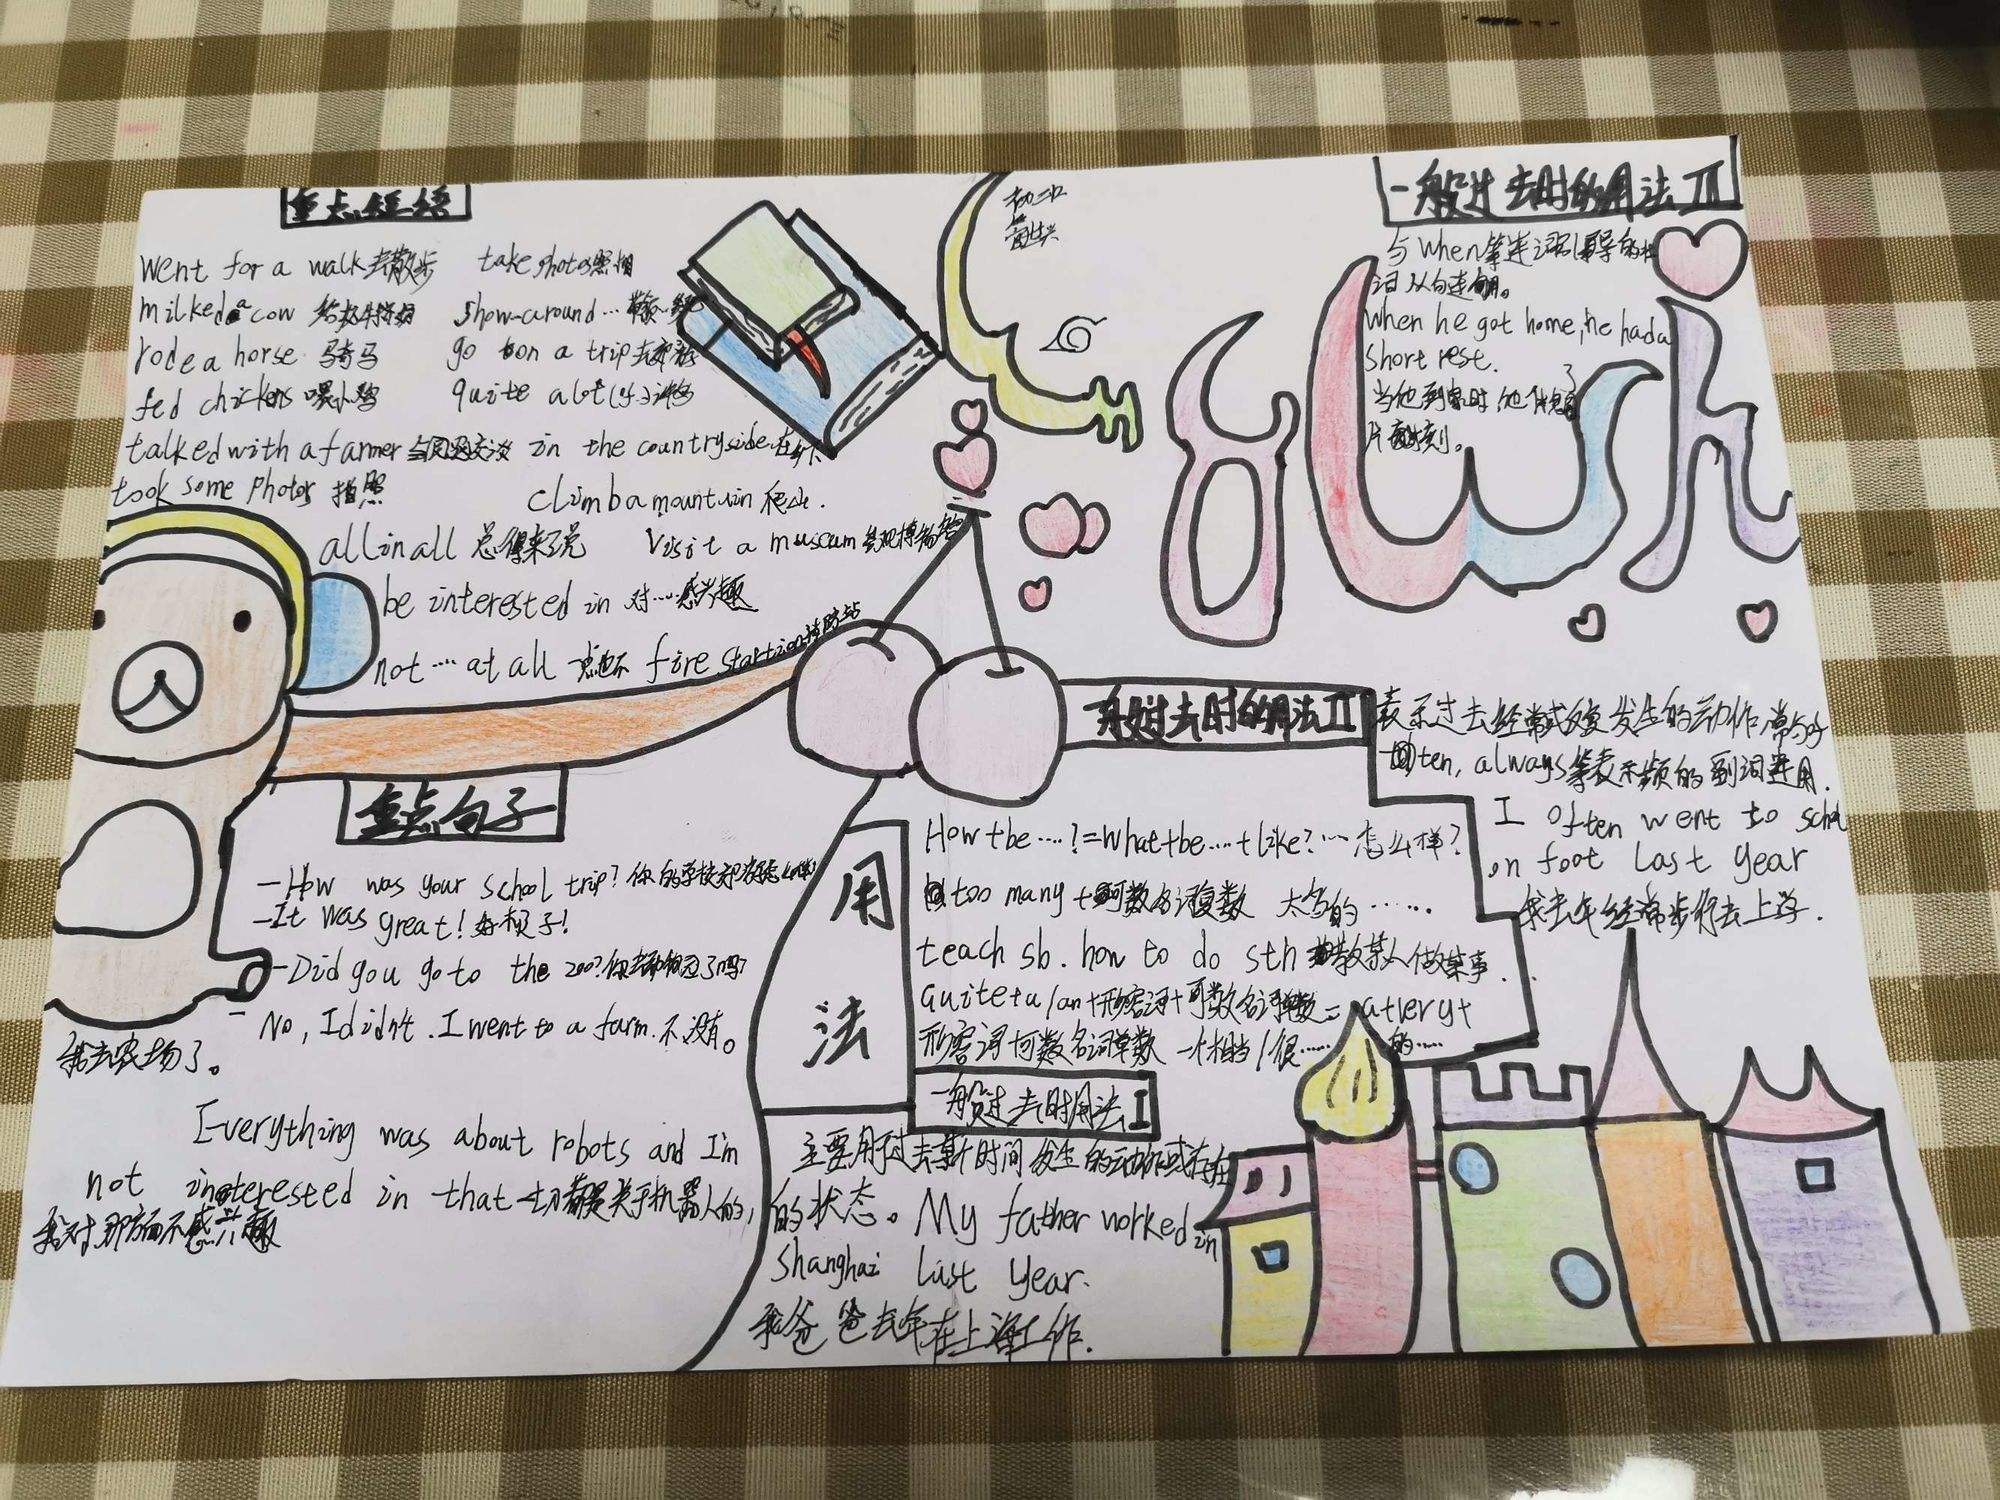 重点短语
went for a walk 去散步
take photos 照相
milked a cow 给奶牛挤奶
show around …
rode a horse 骑马
go on a trip 去郊游
fed chickens 喂小鸡
quite a lot
talked with a farmer 与农民交谈
in the countryside 在乡下
took some photos 拍照
climb a mountain 爬山.
all in all 总得来说
Visit a museum 参观博物馆
be interested in 对…感兴趣
not … at all 一点也不
fire startion 消防站
重点句子
-How was your school trip?
-It was great! 好极了!
-Did you go to the zoo? 你去动物园了吗?
- No, I didn't. I went to a farm. 不,没有。
我去农场了。
Everything was about robots and I'm
not interested in that 一切都是关于机器人的,
我对那方面不感兴趣
一般过去时的用法III
与when等连词引导的状
语从句连用。
when he got home, he had a
short rest.
当他到家时,他休息了
片刻。
一般过去时的用法II
表示过去经常或反复发生的动作,常与
often, always等表示频的副词连用.
I often went to school
on foot last year
我去年经常步行去上学.
用法
How+be……?=what+be……+like?…怎么样?
too many+可数名词复数 太多的……
teach sb. how to do sth 教某人做某事.
Quite+a/an+形容词+可数名词单数=a+very+
形容词+可数名词单数 一个相当/很……的……
一般过去时用法I
主要用于过去某个时间发生的动作或存在
的状态。My father worked in
Shanghai last year.
我爸爸去年在上海工作.